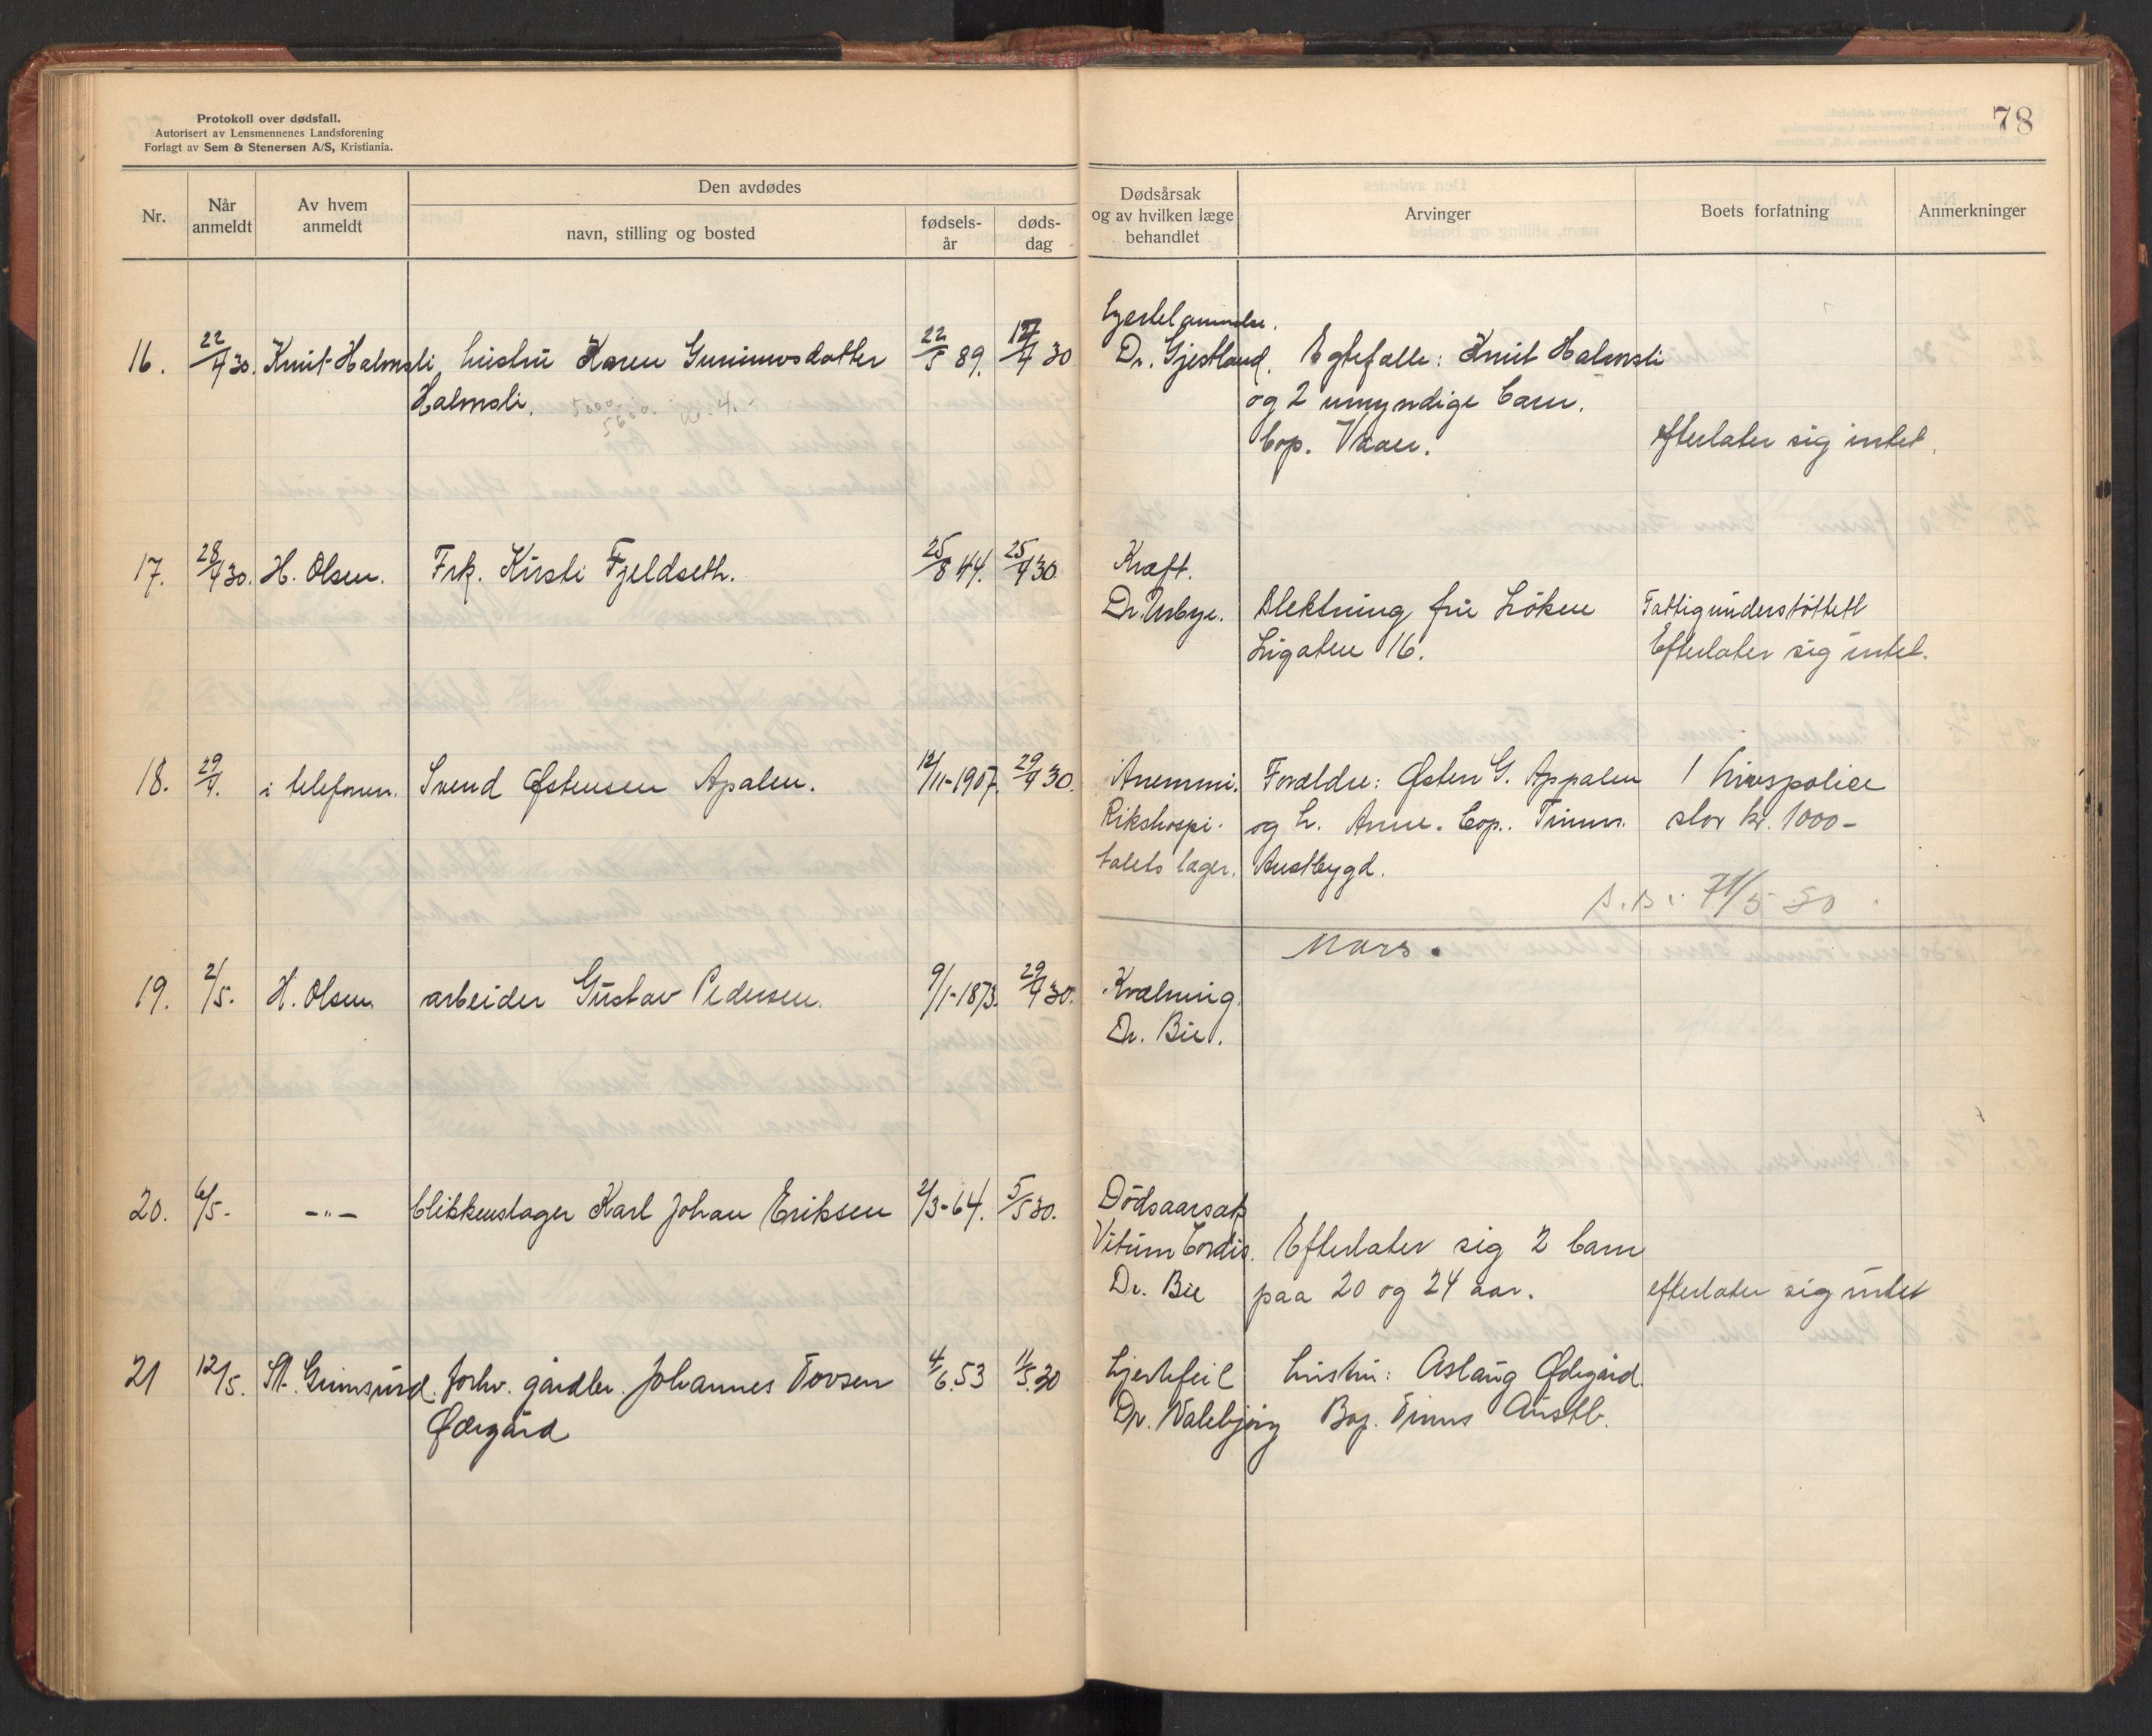 Protokoll over dødsfall.
Autorisert av Lensmennenes Landsforening
Forlagt av Sem & Stenersen A/S, Kristiania.
78
Nr.
Når anmeldt
Av hvem anmeldt
Den avdødes
navn, stilling og bosted
fødsels-år
døds-dag
Dødsårsak og av hvilken læge behandlet
Arvinger
Boets forfatning
Anmerkninger
16. 22/4 30. Knut Halmsli, hustru Karen Gunimusdatter 22/5 89. 17/4 30
Halmsli.
Dr. Gjestland. Egtefælle: Knut Halmsli
og 2 umyndige barn.
efterlater sig intet.
17. 28/4 30. H. Olsen. Frk. Kirsti Fjeldseth. 25/8 44. 25/4 30
Kræft.
Dr. Urbye. Slektning fru Løken Fattigunderstøttett
Ligaten 16. Efterlater sig intet.
18. 29/4. i telefonen. Svend Østensen Apalen. 12/11-1907. 29/4 30.
Anemmi. Forældre: Østen G. Appalen 1 livspolice
Rikshospi- og h. Anne. bop. Tinn stor kr. 1000-
talets læger. Austbygd.
Mars.
19. 2/5. H. Olsen arbeider Gustav Pedersen. 9/1-1873. 29/4 30.
Kvælning.
Dr. Bie.
20. 6/5- -"- blikkenslager Karl Johan Eriksen 2/3-64. 5/5 30.
Dödsaarsak
Vitium Cordis. Efterlater sig 2 barn
Dr. Bie paa 20 og 24 aar. efterlater sig intet
21 12/5. St. Grimsrud. forhv. gårdbr. Johannes Tovsen 4/6.53 11/5.30
Ødegård
hjertefeil hustru: Aslaug Ødegård.
Dr. Valebjørg Bop. Tinns Austb.